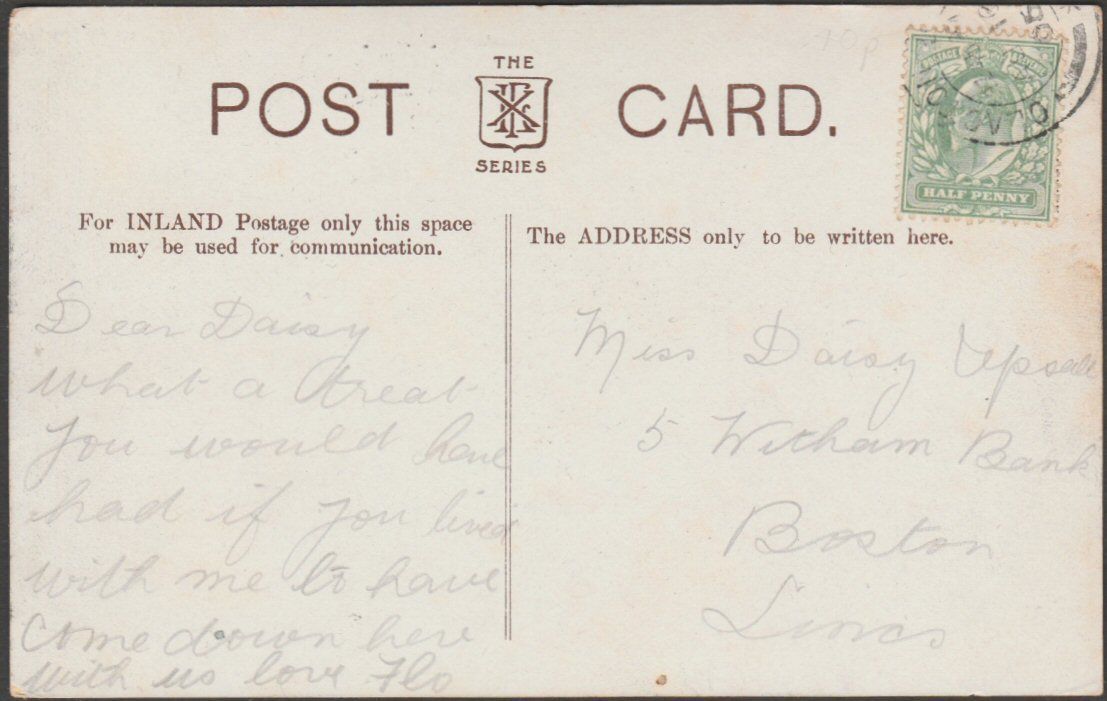 THE
POST CARD.
SERIES
For INLAND Postage only this space
may be used for communication.
The ADDRESS only to be written here.
HALF PENNY
Dear Daisy
what a treat
you would have
had if you lived
with me to have
come down here
with us love Flo
Miss Daisy Upsall
5 Witham Bank
Boston
Lincs